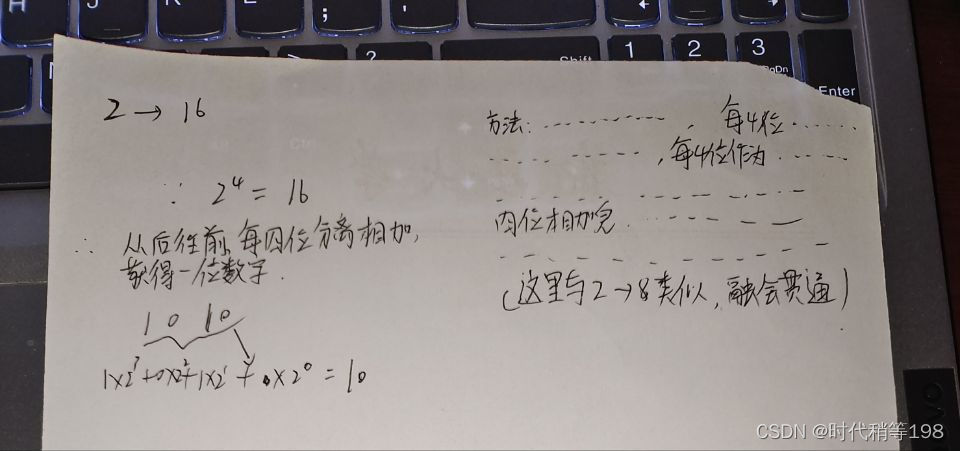 2 → 16
∵ 2⁴ = 16
∴ 从后往前,每四位分离相加,
获得一位数字.
1 0 1 0
1×2³+0×2²+1×2¹+0×2⁰=10
方法: ············, 每4位······
···· ······, 每4位作为 ······
四位相加完 ············
(这里与2→8类似, 融会贯通)
H
J
N
M
?
Shift
1
2
3
PgDn
Enter
CSDN @时代稍等198